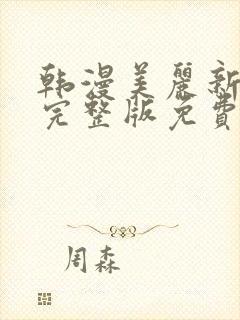 韩漫美麗新
完整版免費
周森